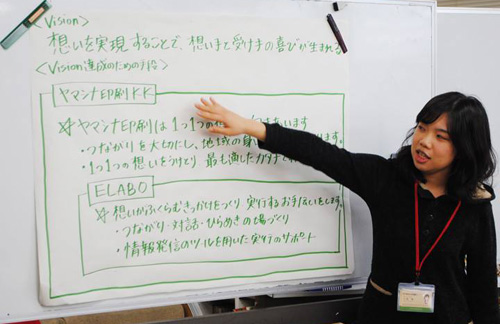 <Vision>
想いを実現することで、想いまで受けまの喜びが生まれる
<Vision達成のための手段>
ヤマシナ印刷KK
※ヤマシナ印刷は1つ1つの想
います
・つながりを大切にし、地域の身
ます。
・1つ1つの想いをうけとり 最も適したカタチで
ELABO
※想いがふくらむきっかけをつくり 実行するお手伝いをします。
・つながり・対話・ひらめきの場づくり
・情報発信のツールを用いた実行のサポート